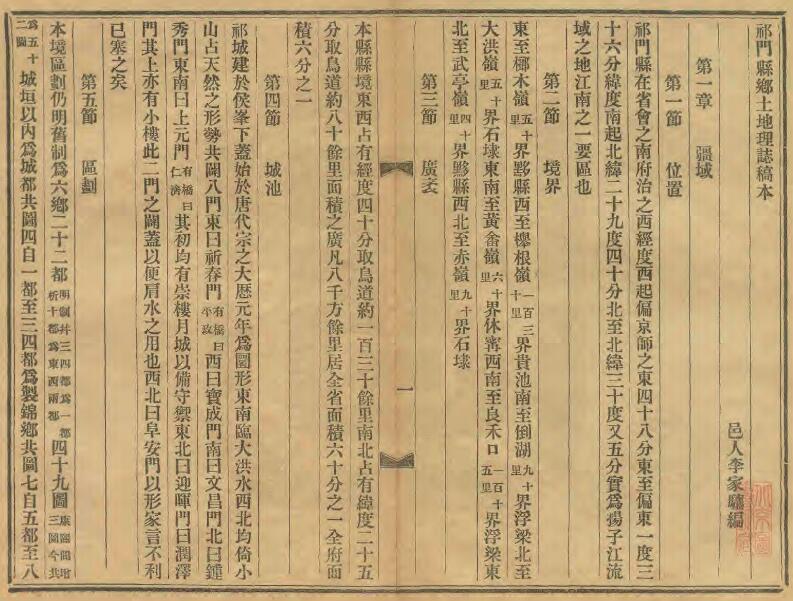 祁門縣鄉土地理誌稿本
邑人李家驤編
第一章　疆域
第一節　位置
祁門縣在省會之南府治之西經度西起偏京師之東四十八分東至偏東一度三
十六分緯度南起北緯二十九度四十分北至北緯三十度又五分實爲揚子江流
域之地江南之一要區也
第二節　境界
東至榔木嶺五十里界黟縣西至櫸根嶺一百三十里界貴池南至倒湖九十里界浮梁北至
大洪嶺五十里界石埭東南至黃畬嶺六十里界休寗西南至良禾口一百十五里界浮梁東
北至武亭嶺四十里界黟縣西北至赤嶺九十里界石埭
第三節　廣袤
本縣縣境東西占有經度四十分取鳥道約一百三十餘里南北占有緯度二十五
分取鳥道約八十餘里面積之廣凡八千方餘里居全省面積六十分之一全府面
積六分之一
第四節　城池
祁城建於侯峯下蓋始於唐代宗之大厯元年爲圜形東南臨大洪水西北均倚小
山占天然之形勢共闢八門東曰祈春門有橋曰平政西曰寶成門南曰文昌門北曰鍾
秀門東南曰上元門有橋曰仁濟其初均有崇樓月城以備守禦東北曰迎暉門曰潤澤
門其上亦有小樓此二門之闢蓋以便肩水之用也西北曰阜安門以形家言不利
已塞之矣
第五節　區劃
本境區劃仍明舊制爲六鄉二十二都明制幷三四都爲一都析十都爲東西兩都四十九圖康熙間增三圖今共
爲五十二圖城垣以內爲城都共圖四自一都至三四都爲製錦鄉共圖七自五都至八
一